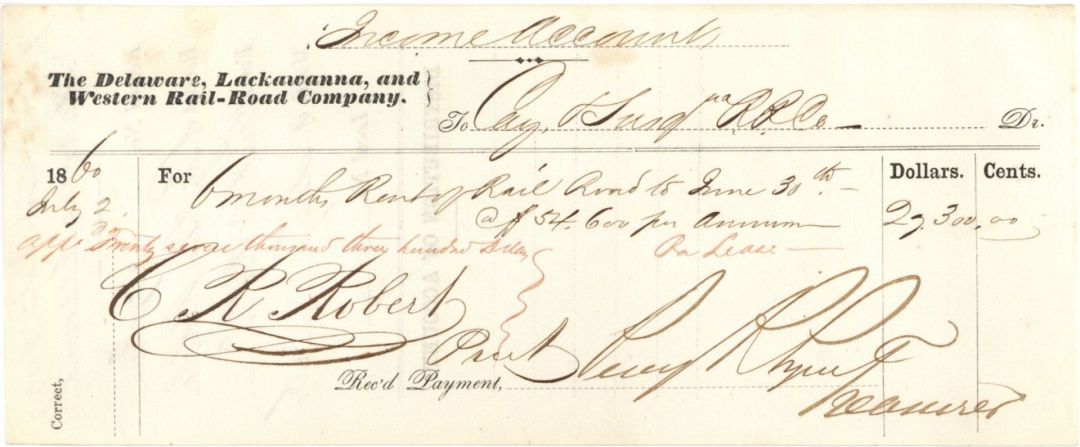 Income Accounts
The Delaware, Lackawanna, and
Western Rail-Road Company.
To Cay. & Susqna R.R. Co Dr.
1860 For Dollars. Cents.
July 2. 6 months Rent of Rail Road to June 30th.
@ $54.600 per annum 27,300.00
appd Twenty seven thousand three hundred Dollars Per Lease
C R Robert
Prest
Rec'd Payment,
Treasurer
Correct,